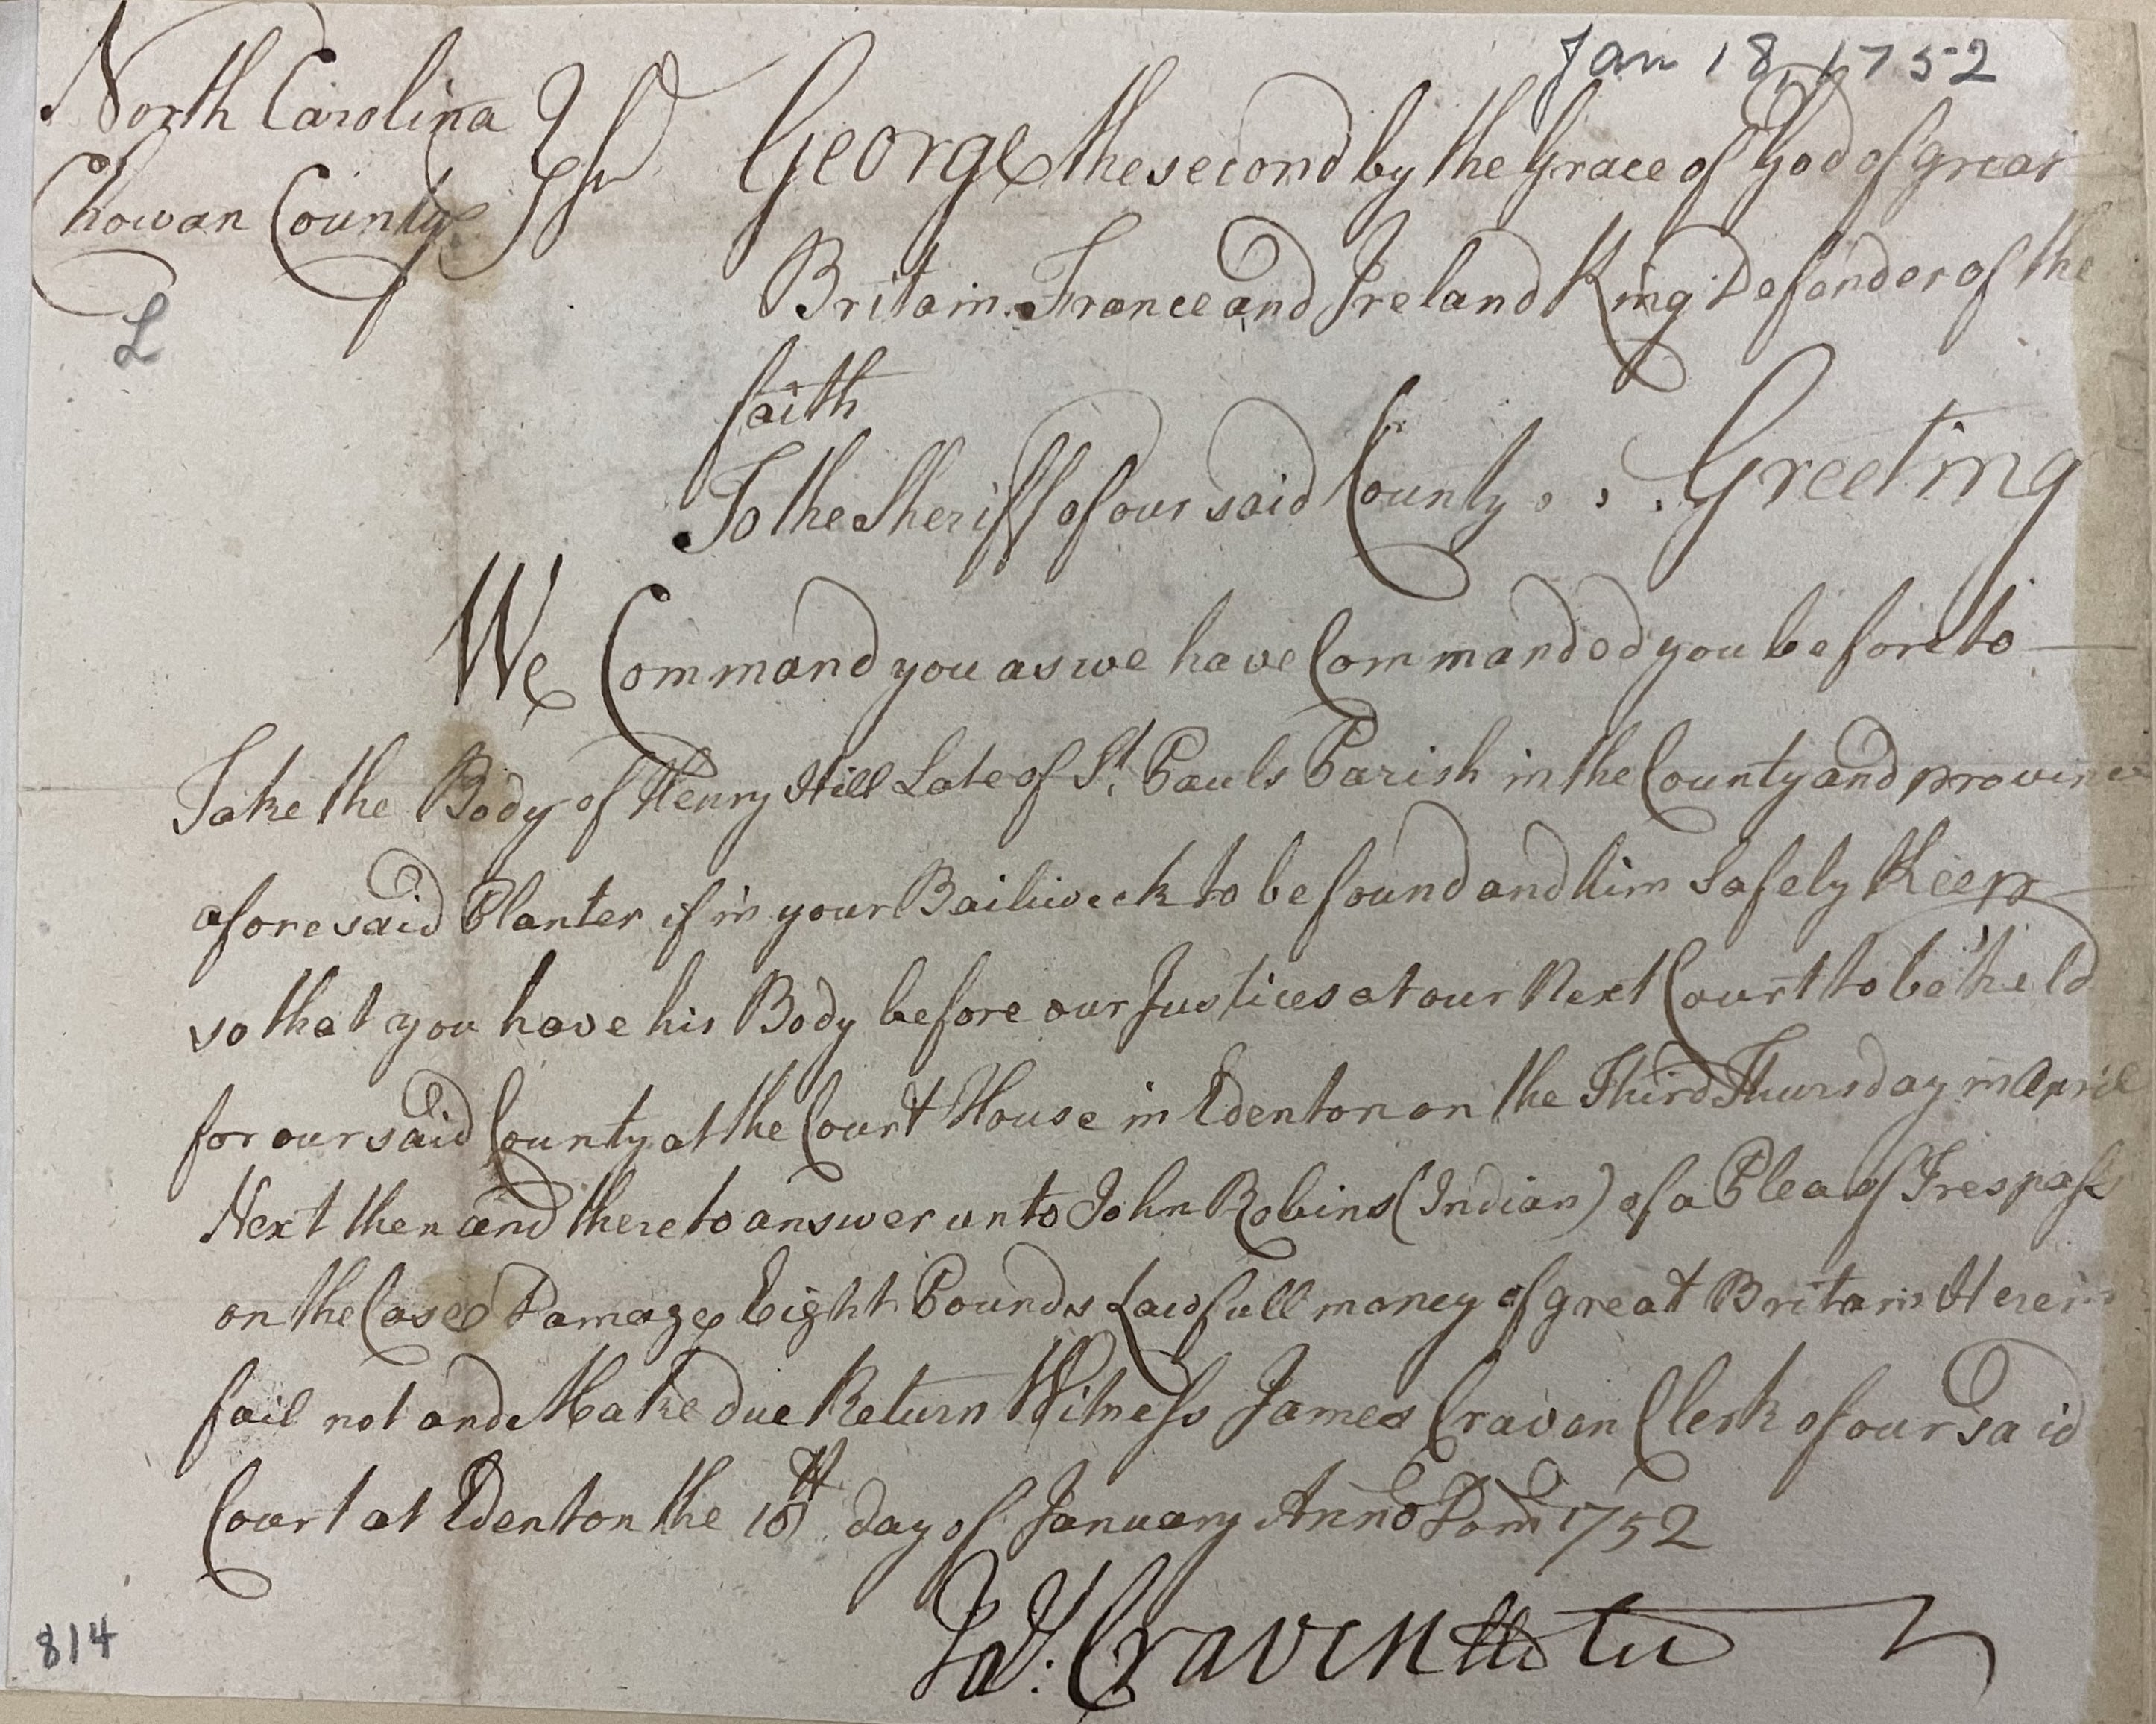 Jan 18, 1752
North Carolina
Chowan County
Ss
George the second by the Grace of God of great
Britain France and Ireland King Defender of the
faith
To the Sheriff of our said County . . . Greeting
We Command you as we have Commanded you before to
Take the Body of Henry Hill Late of St. Pauls Parish in the County and province
aforesaid Planter if in your Bailiweck to be found and him Safely Keep
so that you have his Body before our Justices at our Next Court to be held
for our said County at the Court House in Edenton on the Third Thursday in April
Next then and there to answer unto John Robins (Indian) of a Plea of Trespass
on the Case Damage Eight Pounds Lawfull money of great Britain Herein
fail not and Make due Return Witness James Craven Clerk of our said
Court at Edenton the 18th day of January Anno Dom 1752
Jas: Craven
L
814